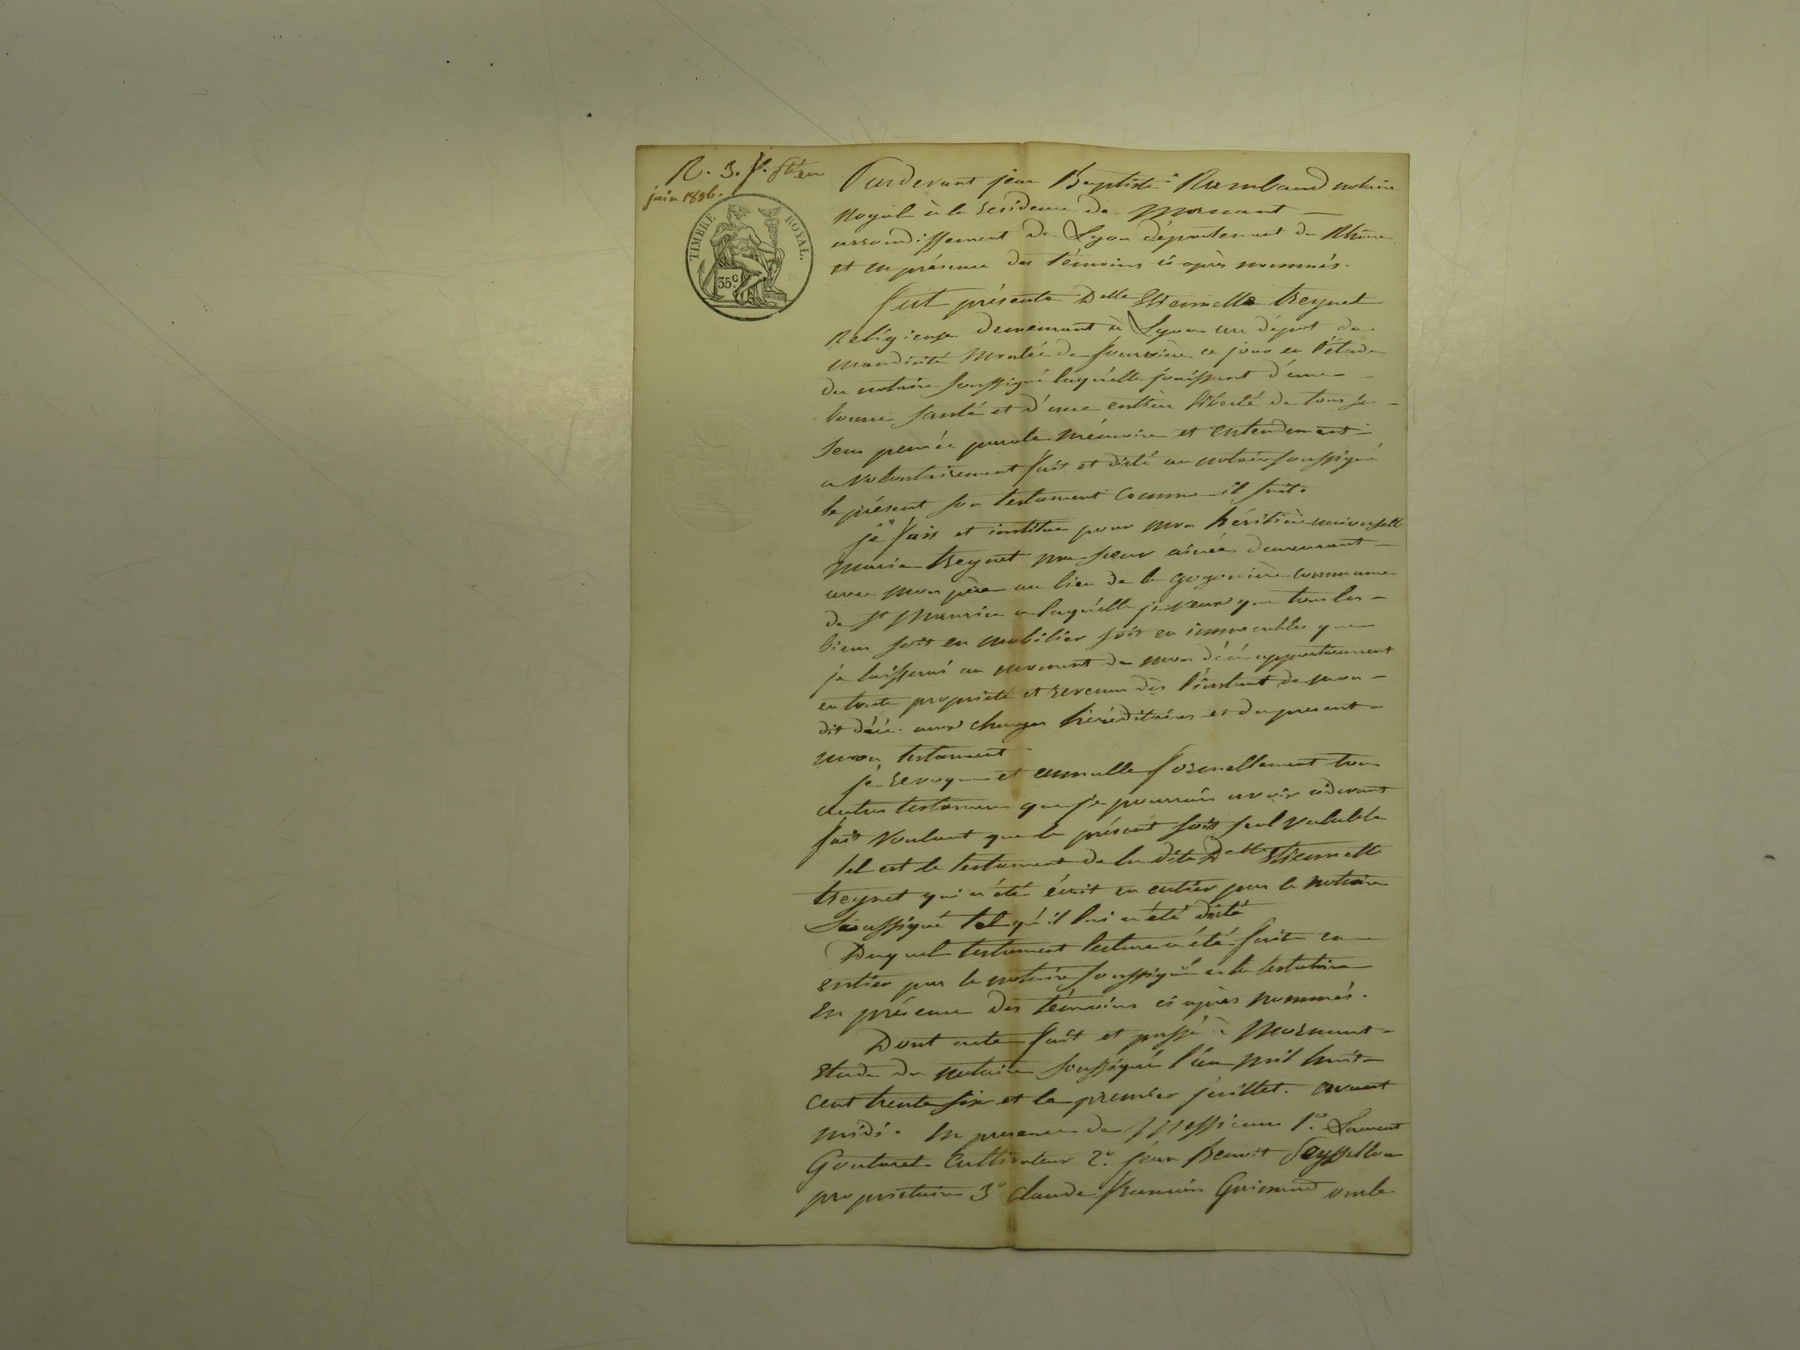 R. 3. f.
juin 1836.
TIMBRE ROYAL.
35c
Pardevant jean Baptiste Rambaud notaire
Royal à la résidence de Mornant
arrondissement de Lyon département du Rhône
et en présence des témoins ci après nommés.
fut présente Delle Etiennette treynet
Religieuse demeurant à Lyon au dépot de
mendicité Montée de fourvière ce jour en l'étude
du notaire soussigné laquelle jouissant d'une
bonne santé et d'une entière liberté de tous ses
sens pensée parole mémoire et entendement
a volontairement fait et dicté au notaire soussigné
le présent son testament comme il suit.
je fais et institue pour mon héritière universelle
marie treynet ma sœur ainée demeurant
avec mon père au lieu de la gogonière commune
de St Maurice a laquelle je veux que tous les
biens soit en mobilier soit en immeubles que
je laisserai au moment de mon décé appartiennent
en toute propriété et revenu dès l'instant de mon
dit décé. aux charges héréditaires et du present
mon testament
je revoque et annulle formellement tous
autres testamens que je pourrais avoir cidevant
fait voulant que le présent soit seul valable
tel est le testament de la dite Delle Etiennette
treynet qui a été écrit en entier par le notaire
soussigné tel qu'il lui a été dicté
Duquel testament lecture a été faite en
entier par le notaire soussigné a la testatrice
en présence des témoins ci après nommés.
Dont acte fait et passé à Mornant
étude du notaire soussigné l'an mil huit
cent trente six et le premier juillet. avant
midi. En presence de Messieurs 1.° Laurent
Goutaret Cultivateur 2.° jean Benoit Seyssellon
propriétaire 3° Claude francois Guinand